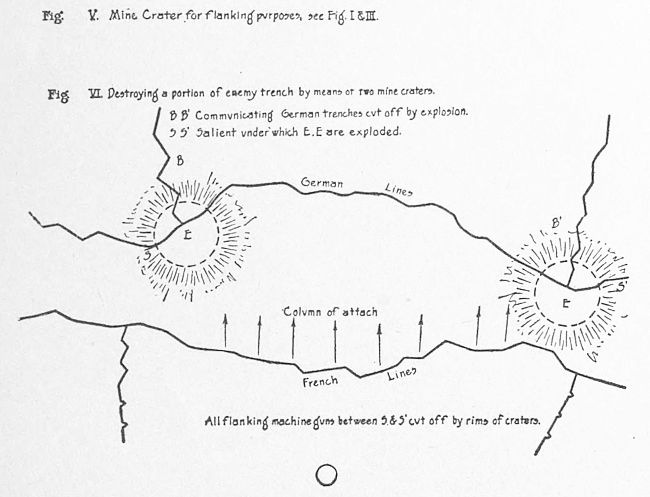 Fig: V. Mine Crater for flanking purposes, see Fig. I & III.
Fig VI. Destroying a portion of enemy trench by means of two mine craters.
B B' Communicating German trenches cut off by explosion.
S S' Salient under which E.E are exploded.
B
German Lines
B'
E
S
S'
E
Column of attach
French Lines
All flanking machine guns between S. & S' cut off by rims of craters.